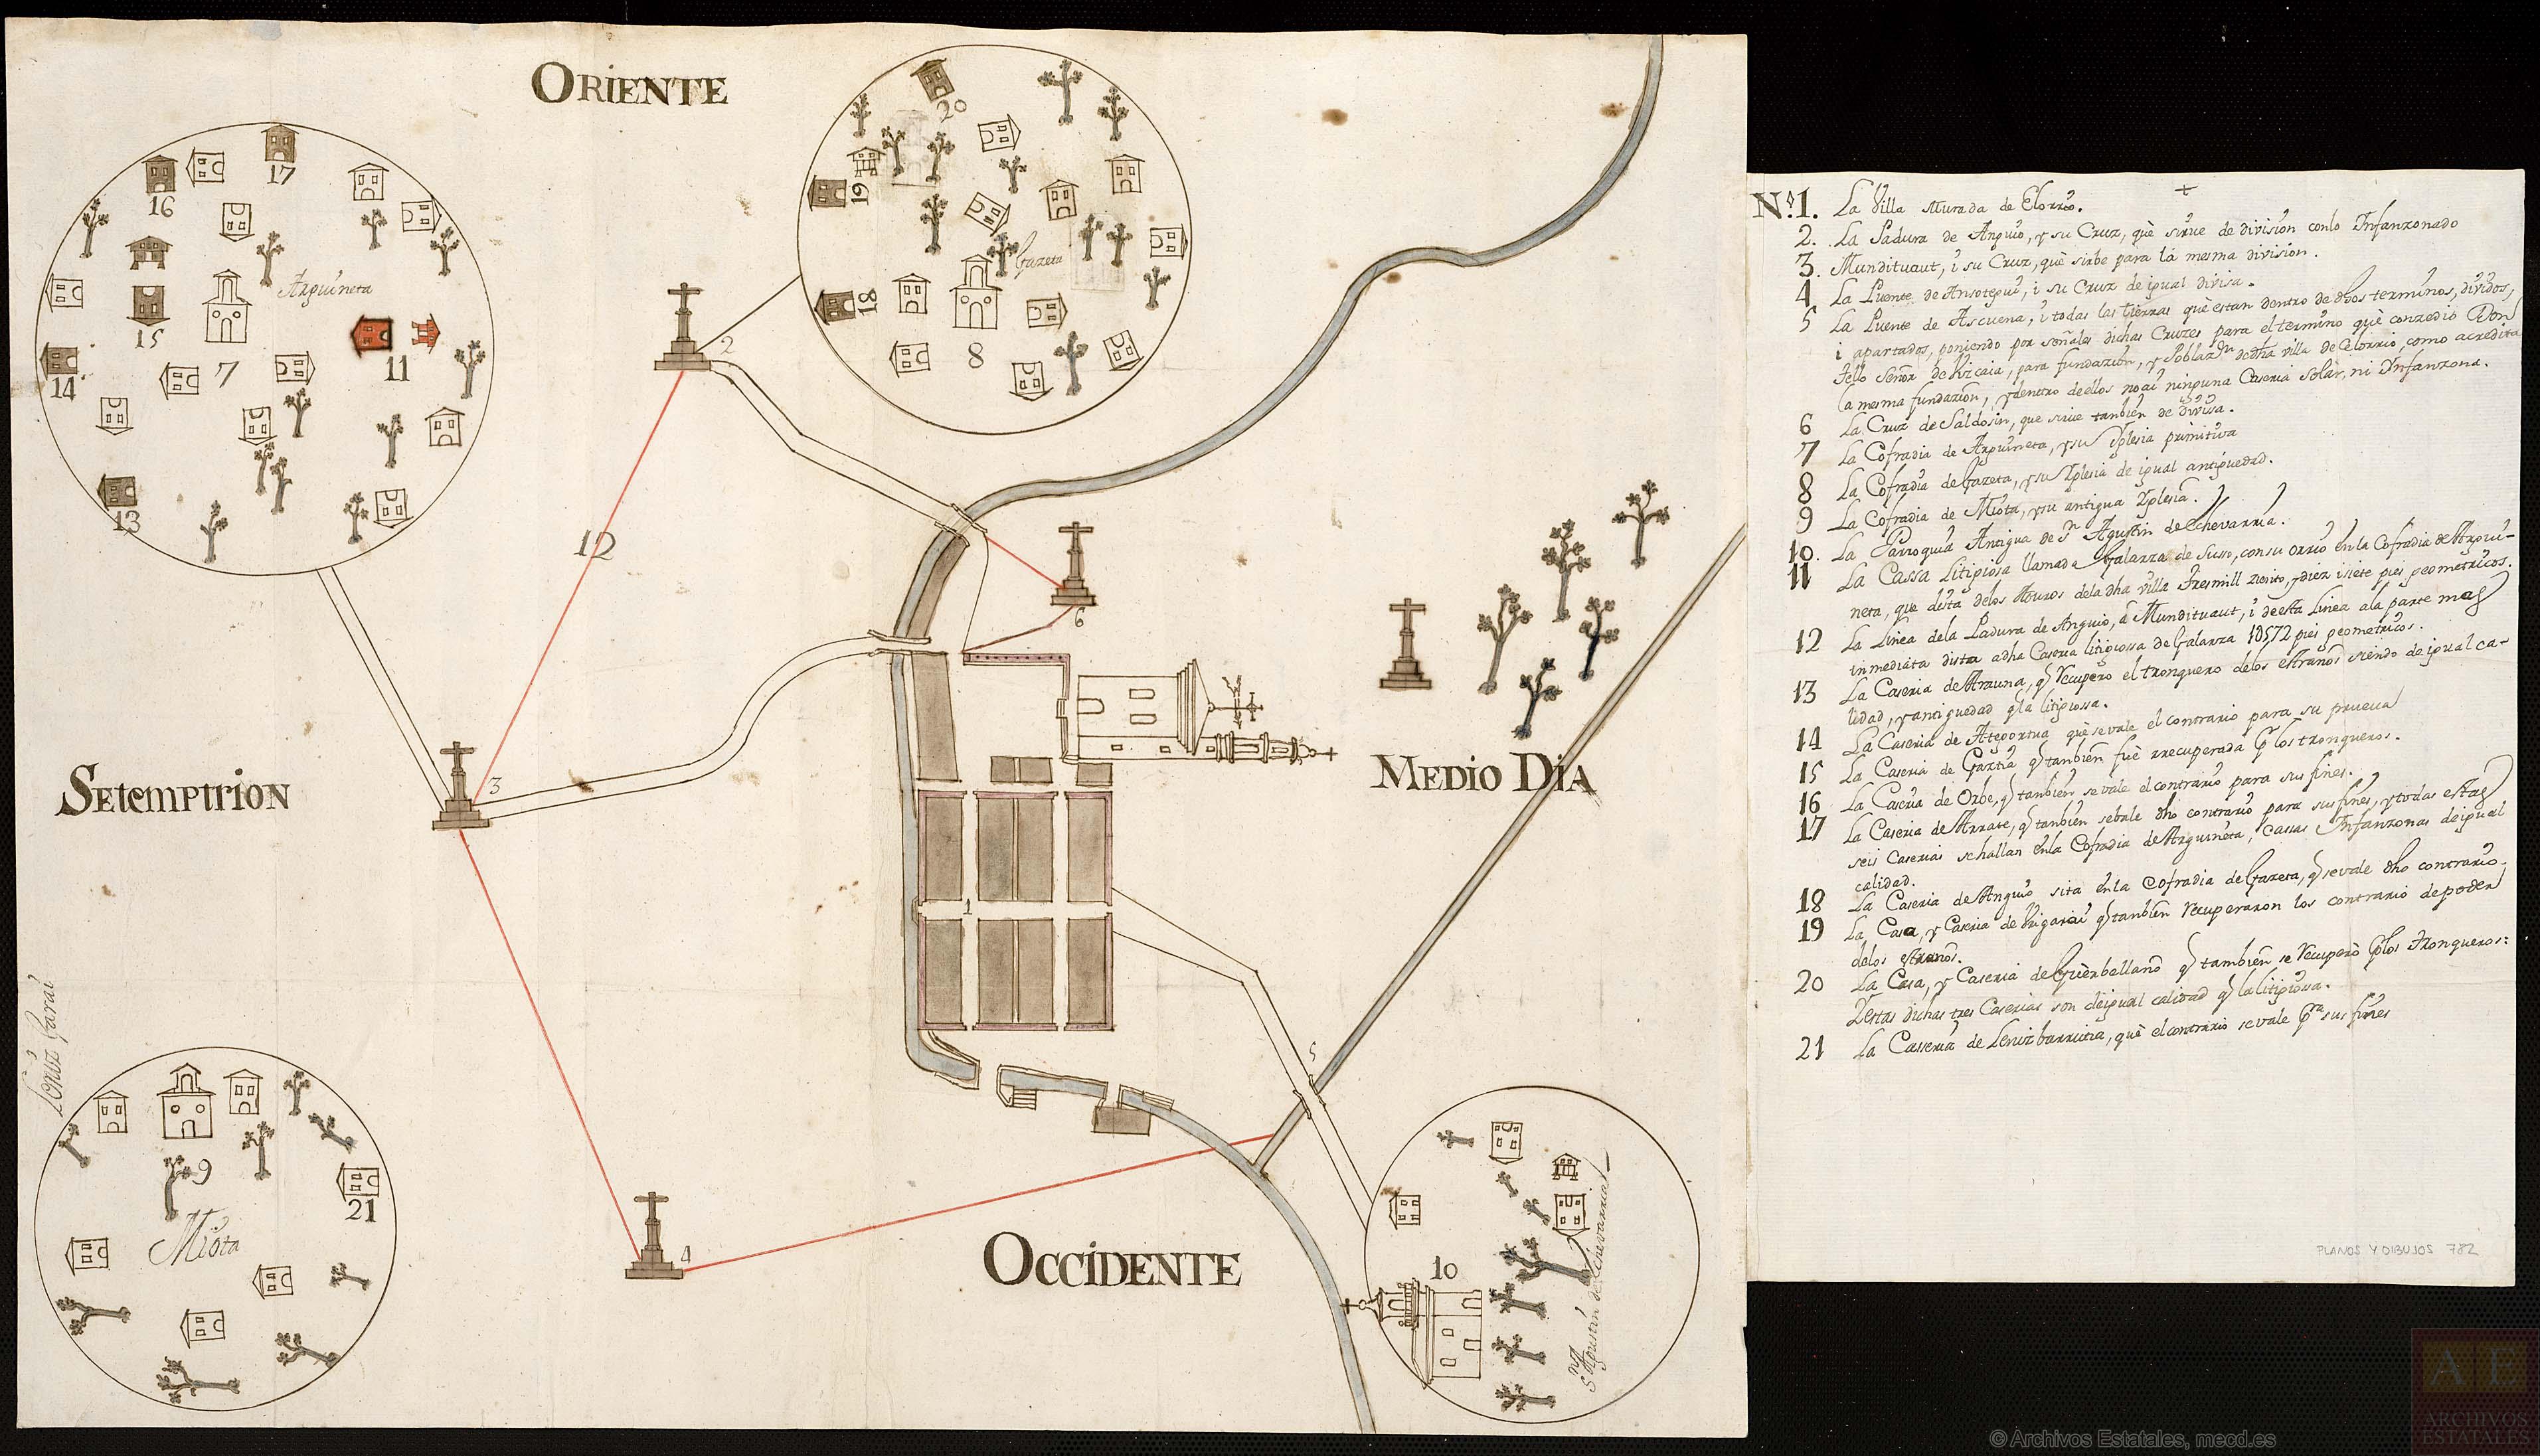 ORIENTE
20
19
Gazeta
18
8
17
16
Arguineta
15
11
14
7
13
2
12
6
3
SETEMPTRION
MEDIO DIA
1
5
9
21
Miota
4
OCCIDENTE
10
Sn Agustin de Echevarria
No. 1. La Villa Murada de Elorrio.
2. La Padura de Anguio, y su Cruz, què sirue de division con lo Infanzonado
3. Mundituaut, i su Cruz, què sirbe para la mesma division.
4 La Puente de Ansotegui, i su Cruz de igual divisa.
5 La Puente de Ascuena, i todas las tierras què estan dentro de dhos terminos, dividos,
i apartados, poniendo por señales dichas Cruzes para el termino què conzedio Don
Tello Señor de Vizcaia, para fundazion, y Poblazn de dha villa de Elorrio, como acredita
la mesma fundazion, y dentro de ellos no ai ninguna Caseria Solar, ni Ynfanzona.
6 La Cruz de Saldosin, que sirue tanbien de divisa.
7 La Cofradia de Arguineta, y su Yglesia primitiva
8 La Cofradia de Gazeta, y su Yglesia de igual antiguedad.
9 La Cofradia de Miota, y su antigua Yglesia.
10. La Parroquia Antigua de Sn Agustin de Echevarria.
11 La Cassa Litigiosa llamada Galarza de Susso, con su orrio en la Cofradia de Argui-
neta, que dista de los Muros de la dha villa Tresmill ziento, y diez i siete pies geometricos.
12 La Linea de la Padura de Anguio, à Mundituaut, i de esta Linea a la parte mas
inmediata dista a dha Caseria litigiossa de Galarza 10572 pies geometricos.
13 La Caseria de Arauna, q Recupero el tronquero de los estraños siendo de igual ca-
lidad, y antiguedad q la litigiossa.
14 La Caseria de què se vale el contrario para su prueua
15 La Caseria de Gartia q tambien fuè rrecuperada por los tronqueros.
16 La Caseria de Orbe, q tanbien se vale el contrario para sus fines.
17 La Caseria de Arrate, q tanbien sebale dho contrario para sus fines, y todas estas
seis Caserias se hallan en la Cofradia de Arguineta, Cassas Infanzonas de igual
calidad.
18 La Caseria de Anguio sita en la Cofradia de Gazeta, q se vale dho contrario.
19 La Casa, y Caseria de q tanbien Recuperaron los contrario de poder
de los estraños.
20 La Casa, y Caseria de q tambien se Recuperò por los Tronqueros:
Y estas dichas tres Caserias son de igual calidad q la litigiossa.
21 La Casseria de Lenizbarrutia, què el contrario se vale para sus fines
PLANOS Y DIBUJOS 782
AE
ARCHIVOS
ESTATALES
© Archivos Estatales, mecd.es